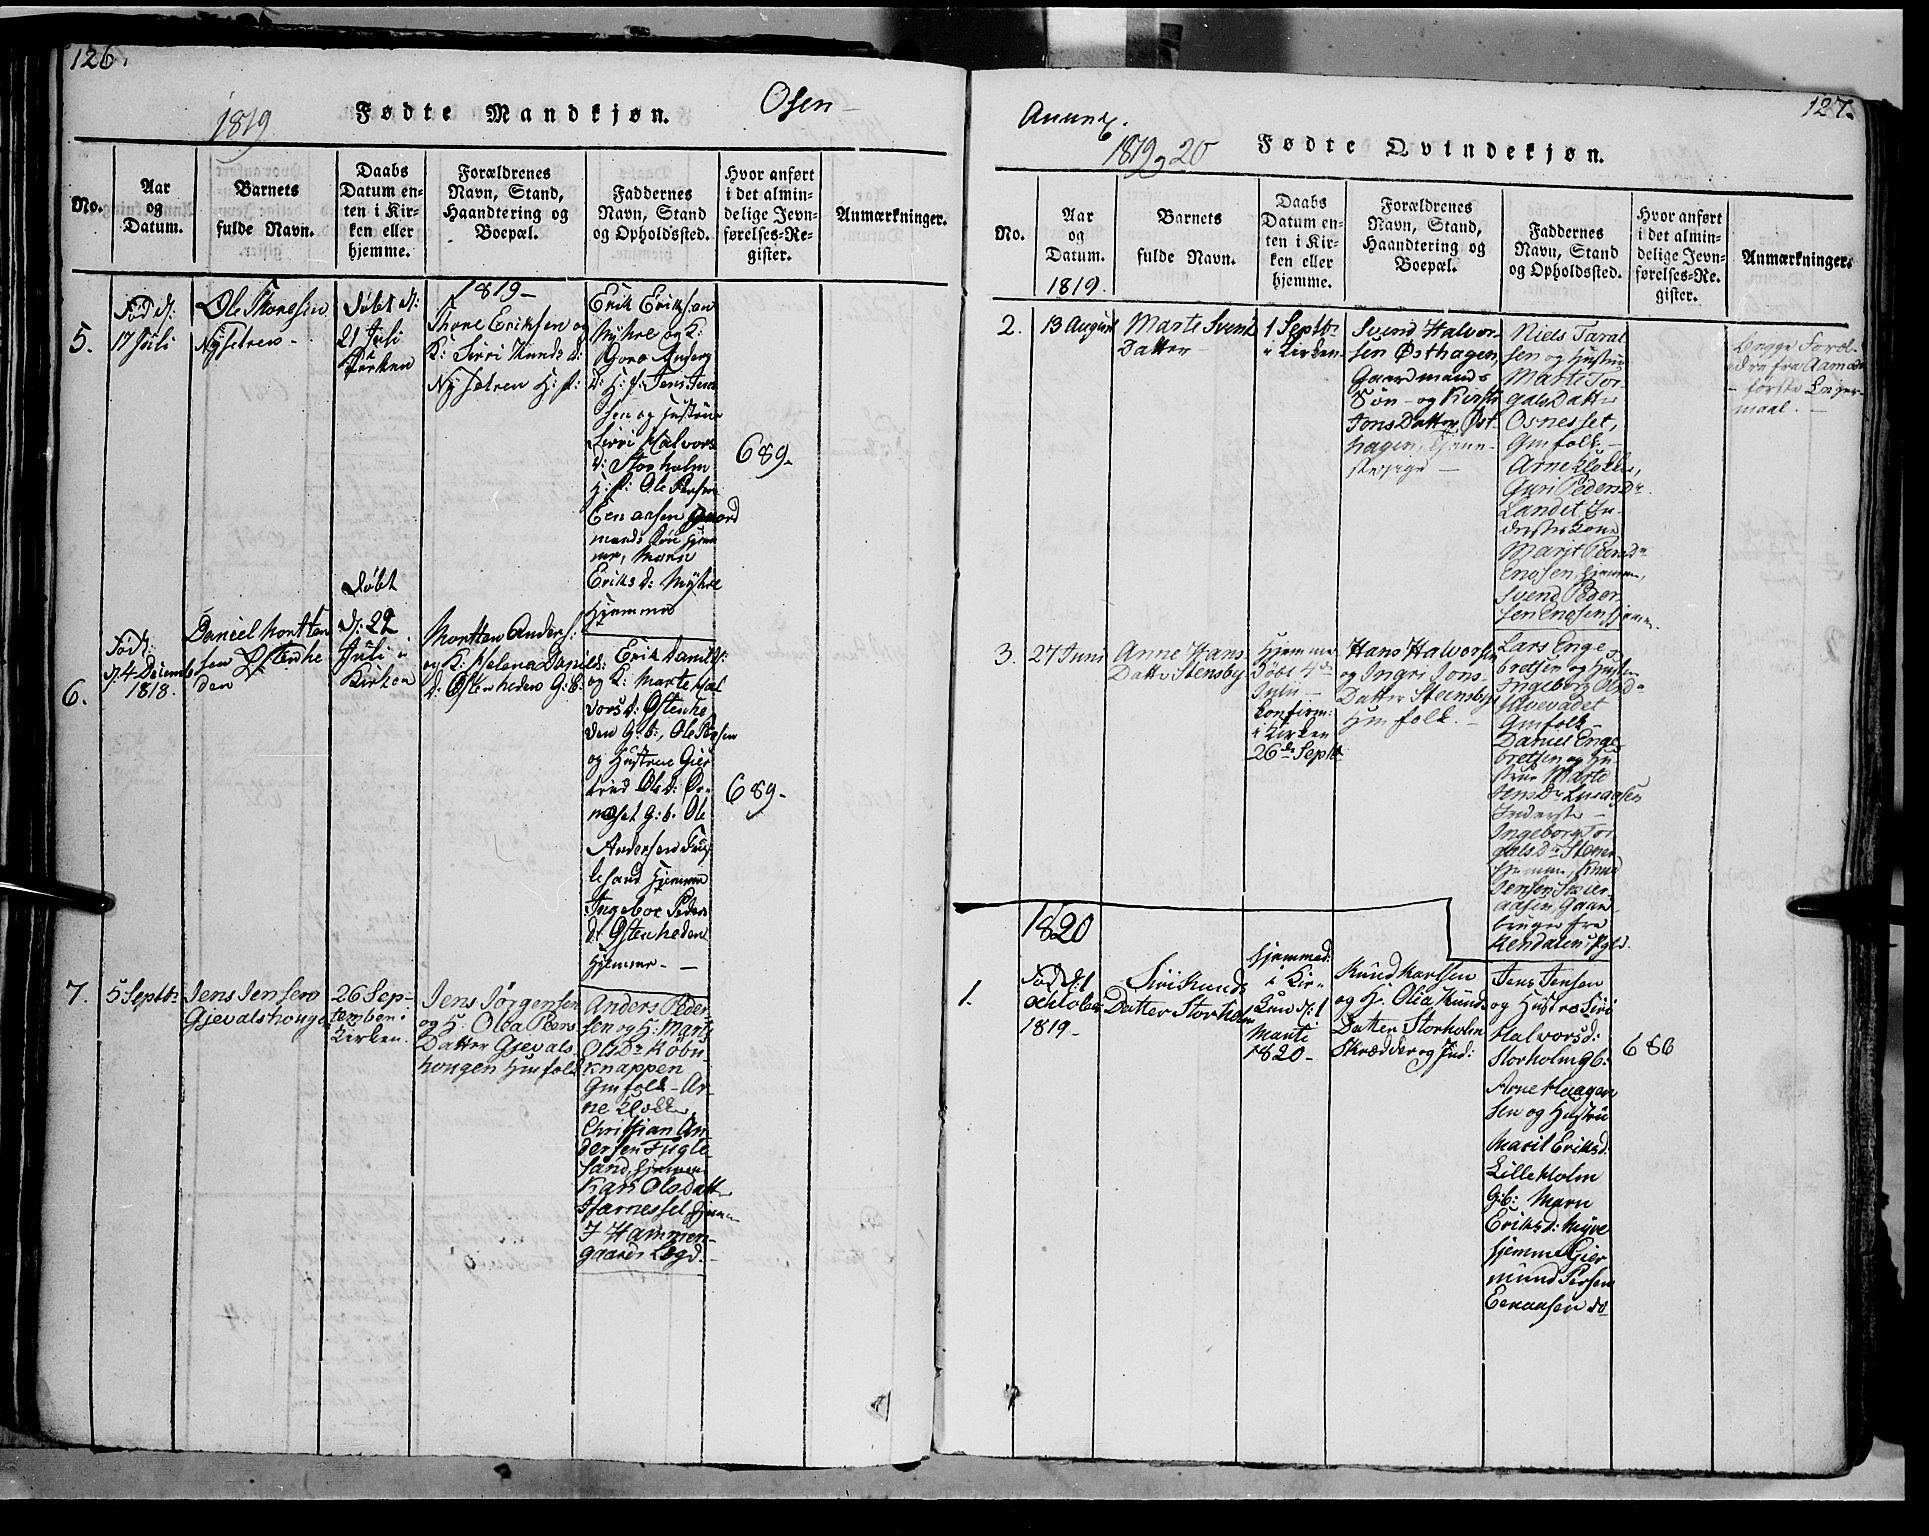 126.
1819
Fødte Mandkjøn.
Osen
No.
Aar
og
Datum.
Barnets
fulde Navn.
Daabs
Datum en-
ten i Kir-
ken eller
hjemme.
Forældrenes
Navn, Stand,
Haandtering og
Boepæl.
Faddernes
Navn, Stand
og Opholdssted.
Hvor anført
i det almin-
delige Jevn-
førelses-Re-
gister.
Anmærkninger.
5.
Fød d:
17 Juli
Ole Thoresen
Nysetren
Døbt d:
21 Juli
i Kirken
1819-
Thore Eriksen og
K: Sirri Knuds d:
Nysetren H: f:
Erik Eriksen
Myhre og K:
d: H: f: Jens Jen
sen og Hustrue
Sirri Halvors
d: Storholm
H: f: Ole Persen
Eenaasen Gaard
mands Søn hjem
me, Maren
Eriks d: Myhre
Hjemme
689-
6.
Fød
d: 4 Decemb
1818.
Daniel Mortten
sen Østenhe
den
Døbt
d: 22
Juli i
Kirken
Mortten Anders:
og K: Helena Daniels
d: Østenheden G: b:
Erik Daniels:
og K: Marte Hal
vors d: Østenhe
den G: b:, Ole Persen
og Hustrue Gier
trud Ols d: Os-
næset g: b. Ole
Andersen Fug
lesand Hjemme
Ingebor Peders
d: Østenheden
Hjemme-
689-
7.
5 Septbr
Jens Jensen
Gjevalshougen
26 Sep-
tember i
Kirken.
Jens Jørgensen
og H: Olea Peers
Datter Gjevals
hougen Huusfolk
Anders Peder
sen og H: Marte
Ols Dr Købu
knappen
Gmfolk- Ar
ne Klokker,
Christian An
dersen Fugle
sand, hjemme
Kari Olsdatter
Hammer-
gaards Lægd.
127.
Annex.
1819 og 20
Fødte Qvindekjøn.
No.
Aar
og
Datum.
1819.
Barnets
fulde Navn.
Daabs
Datum en-
ten i Kir-
ken eller
hjemme.
Forældrenes
Navn, Stand,
Haandtering og
Boepæl.
Faddernes
Navn, Stand
og Opholdssted.
Hvor anført
i det almin-
delige Jevn-
førelses-Re-
gister.
Anmærkninger.
2.
13 August
Marte Svends
Datter
1 Septbr
i Kirken
Svend Halvor-
sen Østhagen,
Gaardmands
Søn - og Kirsti
Jons Datter Øst
hagen, tjene-
stepige
Niels Taral
sen og Hustru
Marte Tor-
gals Datter
Osnesset,
Gmfolk
Arne Klokker,
Guri Peders Dr
Landet In-
derste kone
Marit Peders Dr
Enosen hjemme,
Svend Peder
sen Enosen hjemme.
begge Foræl-
dre fra Aamodt
- første Leier-
maal.
3.
27 Juni
Anne Hans
Datter Stensby
Hjemme
Døbt 4de
Julii
Confirm:
i Kirken
26de Septbr
Hans Halvorsen
og Ingri Jons
Datter Steensby
Huusfolk.
Lars Enge
bretsen og Hustru
Ingeborg Ols Dr
Ulvevadet
Gmfolk
Daniel Enge
bretsen og Hu-
strue Marte
Jens Dr Lusaasen
Inderste
Ingeborg Tor
gals Dr Stener
hjemme, Knud
Jensen Skier
aasen, Gaard
bruger fra
Rendalens Pgld.
1820
1.
Fød d: 1
October
1819-
Siri Knuds
Datter Storholm
Hjemmed:
i Kir-
ken d: 1
Marti
1820-
Knud Karlsen
og H: Olia Knuds
Datter Storholm
Skrædder og Ind:
Jens Jensen
og Hustro Siri
Halvorsd:
Storholm gb:
Arne Haagen
sen og Hustru
Marit Eriksd.
Lilleholm
G: b: Maren
Eriksd: Myre
hjemme Gier
mund Persen
Eenaasen do
686